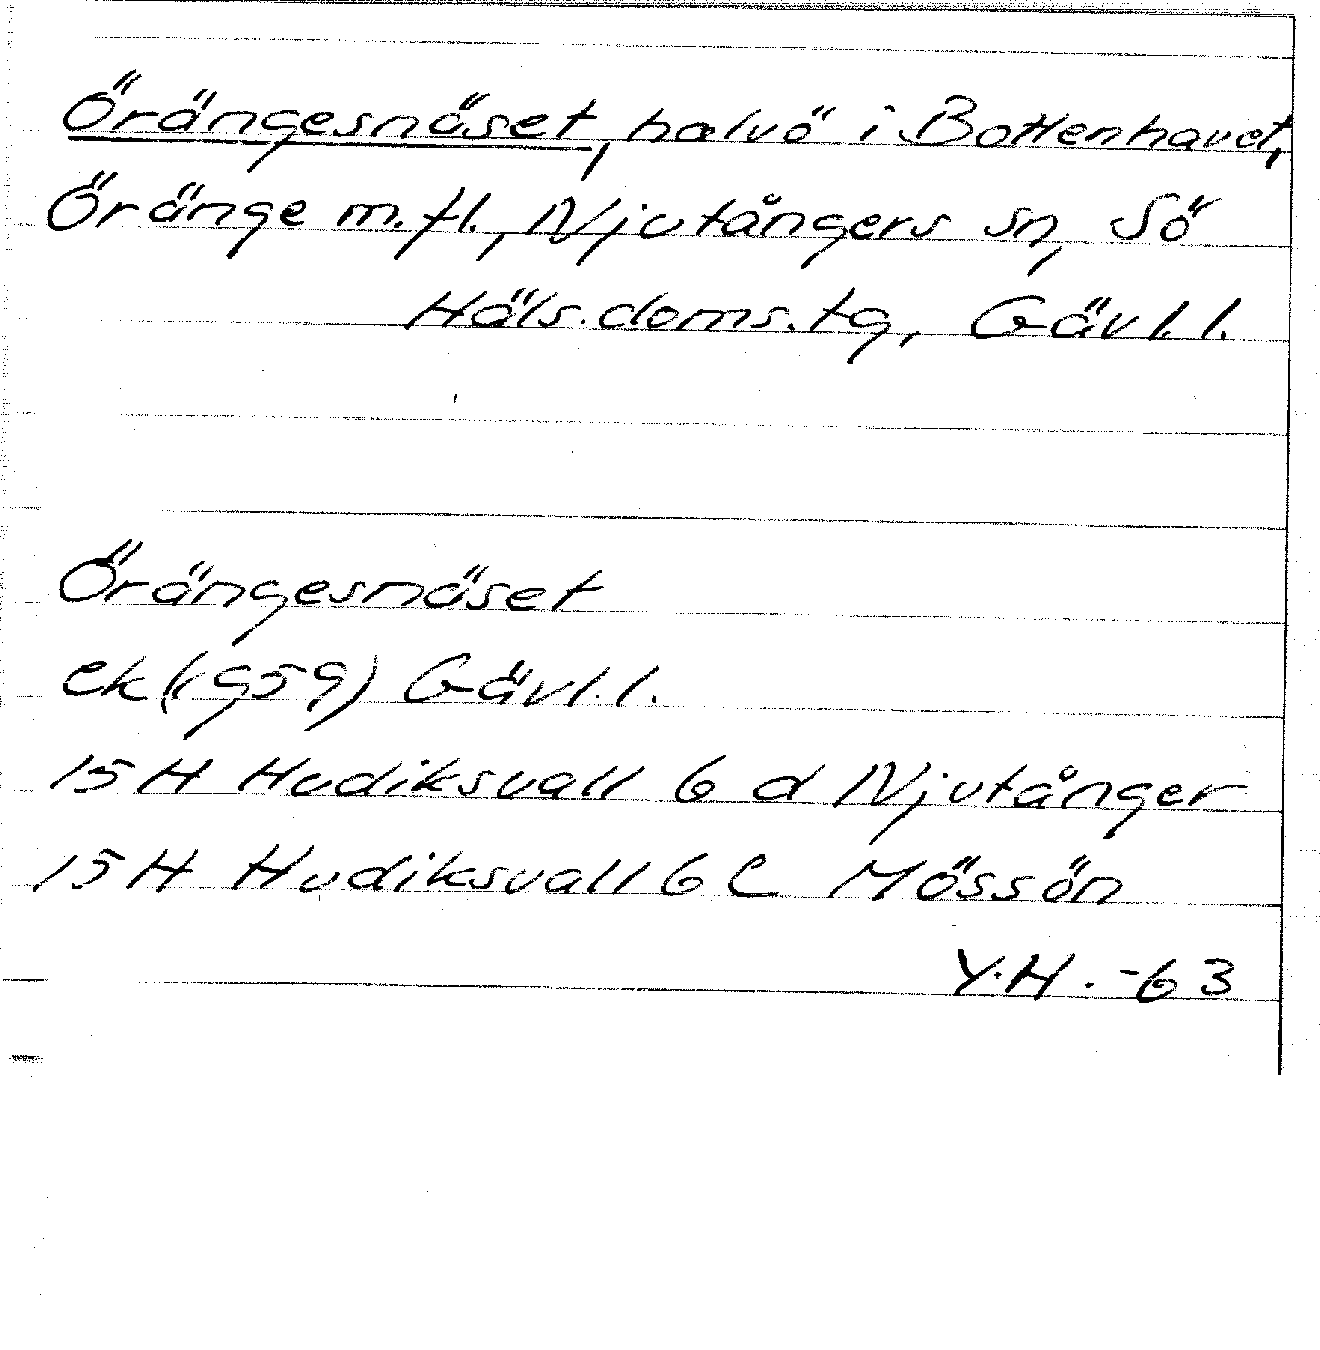 Örängesnäset, halvö i Bottenhavet,
Öränge m.fl., Njutångers sn, Sö
Häls.doms.tg, Gävl.l.
Örängesnäset
ek (1959) Gävl.l.
15H Hudiksvall 6 d Njutånger
15H Hudiksvall 6 e Mössön
Y.H. -63